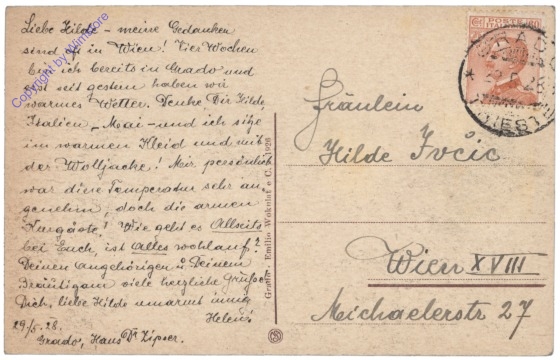 Liebe Hilde – meine Gedanken
sind oft in Wien! Vier Wochen
bin ich bereits in Grado und
erst seit gestern haben wir
warmes Wetter. Denke Dir Hilde,
Italien – Mai – und ich sitze
im warmen Kleid und mit
der Wolljacke! Mir persönlich
war diese Temperatur sehr an-
genehm, doch die armen
Kurgäste! Wie geht es Allseits
bei Euch, ist Alles wohlauf?
Deinen Angehörigen u Deinem
Bräutigam viele herzliche Grüße
Dich, liebe Hilde umarmt innig
Helene
29/5. 28.
Grado, Haus Dr Zipser.
Grafia - Emilio Wokulat e C. - 1926
CENT 30
POSTE ITALIANE
GRADO
TRIESTE
Fräulein
Hilde Ivčic
Wien XVIII
Michaelerstr 27
Copyright by Wimstore